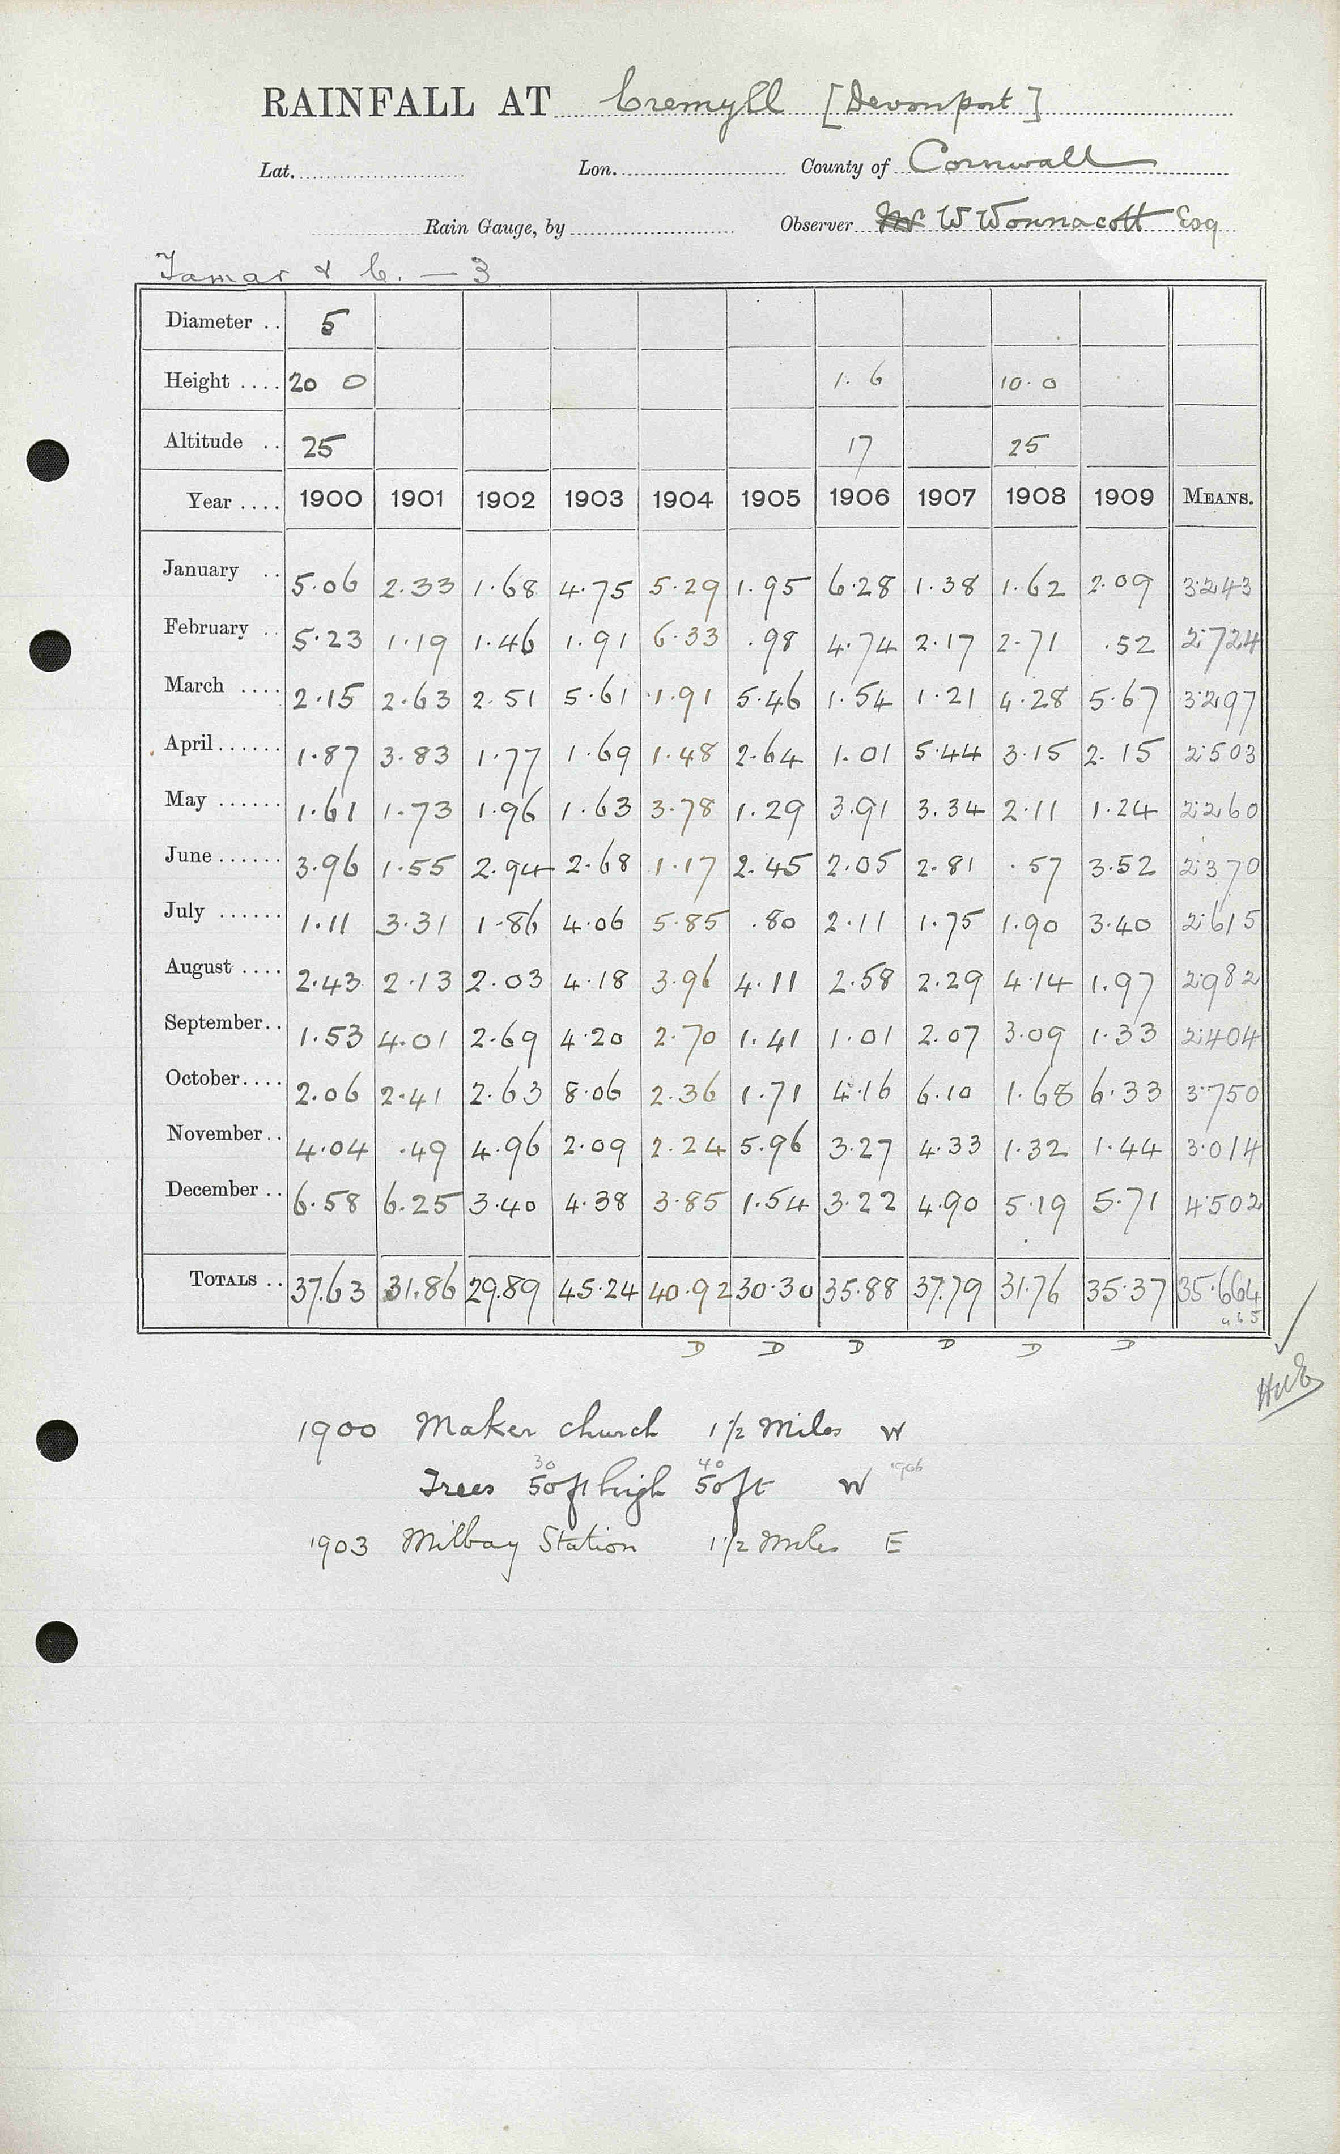 RAINFALL AT Cremyll [Devonport]
Lat. Lon. County of Cornwall
Rain Gauge, by Observer W Wonnacott Esq
Tamar & C. — 3
Diameter .. 5
Height .... 20 0 1. 6 10. 0
Altitude .. 25 17 25
Year .... 1900 1901 1902 1903 1904 1905 1906 1907 1908 1909 MEANS.
January .. 5.06 2.33 1.68 4.75 5.29 1.95 6.28 1.38 1.62 2.09 3.243
February .. 5.23 1.19 1.46 1.91 6.33 .98 4.74 2.17 2.71 .52 2.724
March .... 2.15 2.63 2.51 5.61 1.91 5.46 1.54 1.21 4.28 5.67 3.297
April ...... 1.87 3.83 1.77 1.69 1.48 2.64 1.01 5.44 3.15 2.15 2.503
May ...... 1.61 1.73 1.96 1.63 3.78 1.29 3.91 3.34 2.11 1.24 2.260
June ...... 3.96 1.55 2.94 2.68 1.17 2.45 2.05 2.81 .57 3.52 2.370
July ...... 1.11 3.31 1.86 4.06 5.85 .80 2.11 1.75 1.90 3.40 2.615
August .... 2.43 2.13 2.03 4.18 3.96 4.11 2.58 2.29 4.14 1.97 2.982
September .. 1.53 4.01 2.69 4.20 2.70 1.41 1.01 2.07 3.09 1.33 2.404
October .... 2.06 2.41 2.63 8.06 2.36 1.71 4.16 6.10 1.68 6.33 3.750
November .. 4.04 .49 4.96 2.09 2.24 5.96 3.27 4.33 1.32 1.44 3.014
December .. 6.58 6.25 3.40 4.38 3.85 1.54 3.22 4.90 5.19 5.71 4.502
TOTALS .. 37.63 31.86 29.89 45.24 40.92 30.30 35.88 37.79 31.76 35.37 35.664
D D D D D D
1900 Maker church 1 1/2 Miles W
30 40
Trees 50 ft high 50 ft W 1906
1903 Millbay Station 1 1/2 Miles E